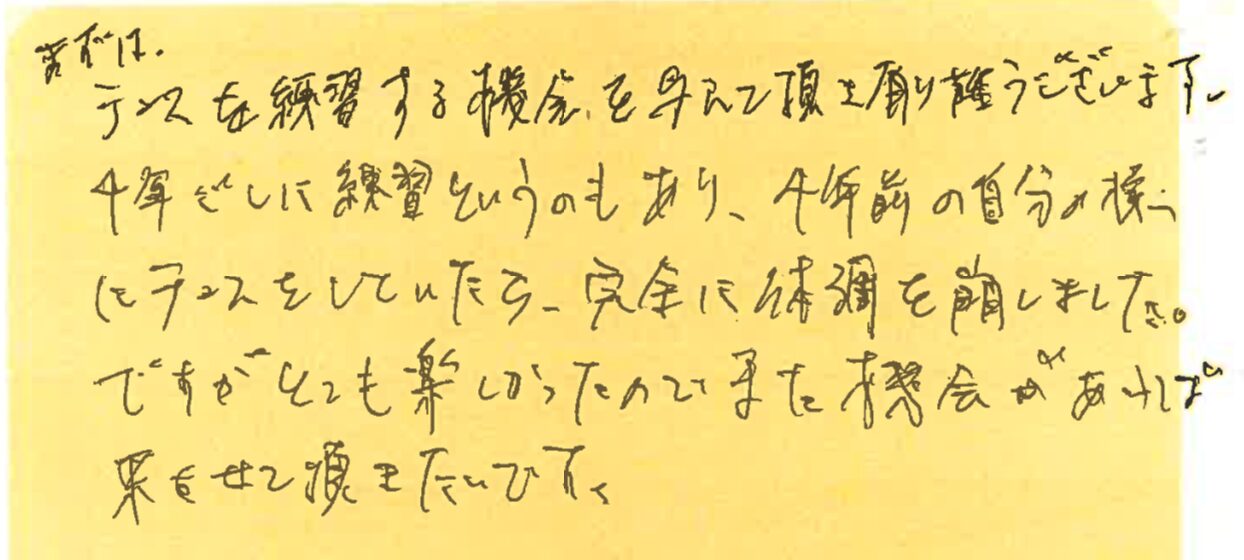 まずは、
テニスを練習する機会を与えて頂き有り難うございます。
4年ぶしに練習というのもあり、4年前の自分の様
にテニスをしていたら、完全に体調を崩しました。
ですがとっても楽しかったのでまた機会があれば
来させて頂きたいです。